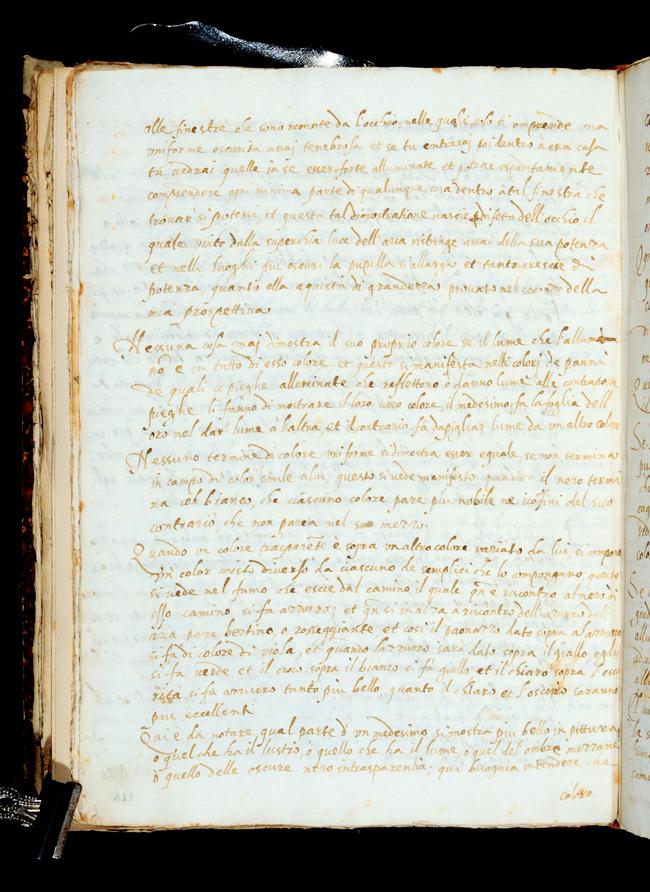 alle finestre che sono remote da l'occhio nelle quali solo si comprende una
uniforme oscurità assaj tenebrosa et se tu entreraj poi dentro à essa casa
tu vedrai quelle in se esser forte alluminate et potrai espeditamente
comprendere ogni minima parte di qualunque cosa dentro à tal finestra che
trovar si potessi, et questa tal dimostratione nascie per difetto dell'occhio il
quale vinto dalla superchia luce dell'aria ristringe assai della sua potenza
et nelli luoghi piu oscuri la pupilla si allarga, et tanto crescie di
potenza quanto ella aquista di grandezza provato nel secondo della
mia prospettiva
Nessuna cosa maj dimostra il suo proprio colore se il lume che l'allumina
non è in tutto di esso colore, et questo si manifesta nelli colorj de panni
de quali le pieghe alluminate che reflettono o danno lume alle contraposte
pieghe li fanno dimostrare il loro vero colore, il medesimo fa la foglia dell
oro nel dar lume à l'altra, et il contrario fà da pigliar lume da un altro colore
Nessuno termine di colore uniforme si dimostra esser eguale, se non termina
in campo di color simile à lui, questo si vede manifesto quando il nero termi
na col bianco, che ciascuno colore pare piu nobile ne i cofini del suo
contrario che non parea nel suo mezzo.
Quando un colore trasparente è sopra un altro colore variato da lui, si compone
un color misto diverso da ciascuno de semplici che lo compongano questo
si vede nel fumo che escie dal camino il quale qn è riscontro al nero di
esso camino si fa azzurro; et qn si inalza à riscontro dell'azurro dell
aria pare bertino, o rosseggiante et cosi il paonazzo dato sopra a l'azzurro
si fà di colore di viola, et quando l'azzurro sarà dato sopra il giallo egli
si fa verde et il croco sopra il bianco si fà giallo et il chiaro sopra l'oscu
rità si fà azzurro tanto più bello, quanto il chiaro et l'oscuro saranno
piu eccellenti
Qui è da notare, qual parte d'un medesimo si mostra piu bello in pittura
o quel che ha il lustro, o quello che ha il lume, o quel del ombre mezzane
o quello delle oscure o vero in trasparentia; qui bisognia intendere che
colore